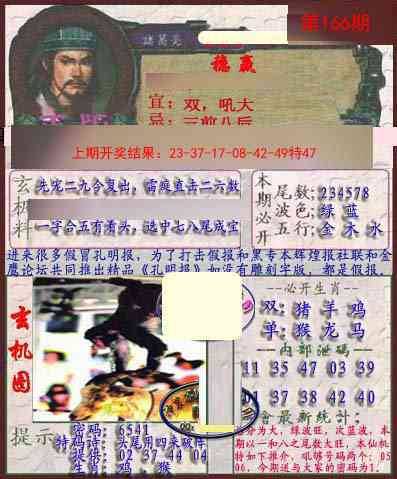 第166期
諸葛亮
稳赢
宜：双，吼大
忌：三前八后
上期开奖结果：23-37-17-08-42-49特47
玄机料
先定二九合复出，雷痕直击二六数
一字合五有看头，选中七八尾成宝
本期必开
尾数;234578
波色;绿 蓝
五行;金 木 水
进来很多假冒孔明报，为了打击假报和黑专本辉煌报社联和金
鹰论坛共同推出精品《孔明报》如没有雕刻字版，都是假报.
玄机图
--必开生肖--
双：猪 羊 鸡
单：猴 龙 马
--内部泄码--
11 35 47 03 39
01 37 38 42 40
會最新統計：
分为大，绿波旺，次蓝波，本
期以一和八之尾数大旺，本仙机
特如下推介，吼够号码两个：05
06，今期送与大家的密码为1.
提示
密码：6541
特码诗：头尾用四来破阵
提供：02 37 44 04
生肖：鸡，猴